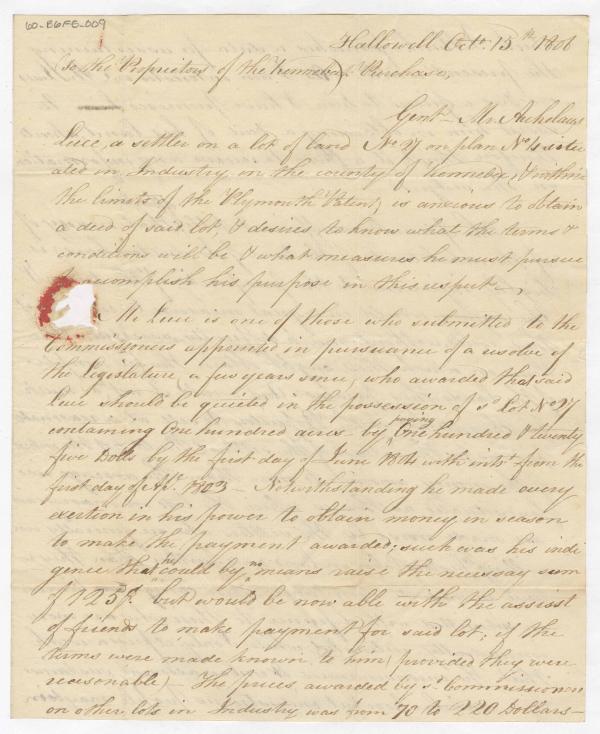 60-E6FE-009
Hallowell Octr. 15th. 1806
To the Proprietors of the Kennebec Purchase,
Gentn. Mr.
Luce, a settler on a lot of land No 27 on plan No 4 situ
ated in Industry in the county of Kennebec, & within
the limits of the Plymouth Patent, is anxious to obtain
a deed of said lot, & desires to know what the terms &
conditions will be & what measures he must pursue
to accomplish his purpose in this respect,
Mr Luce is one of those who submitted to the
Commissioners appointed in pursuance of a resolve of
the legislature a few years since, who awarded that said
Luce should be quieted in the possession of sd lot No 27
containing One hundred acres by paying One hundred & twenty
five Dolls by the first day of June 1804 with intt from the
first day of 1803 - Notwithstanding he made every
exertion in his power to obtain money in season
to make the payment awarded; such was his indi
gence that he could by no means raise the necessay sum
of 125$. but would be now able with the assist
of friends to make payment for said lot; if the
terms were made known to him (provided they were
reasonable) The prices awarded by sd Commissioners
on other lots in Industry was from 70 to 220 Dollars-